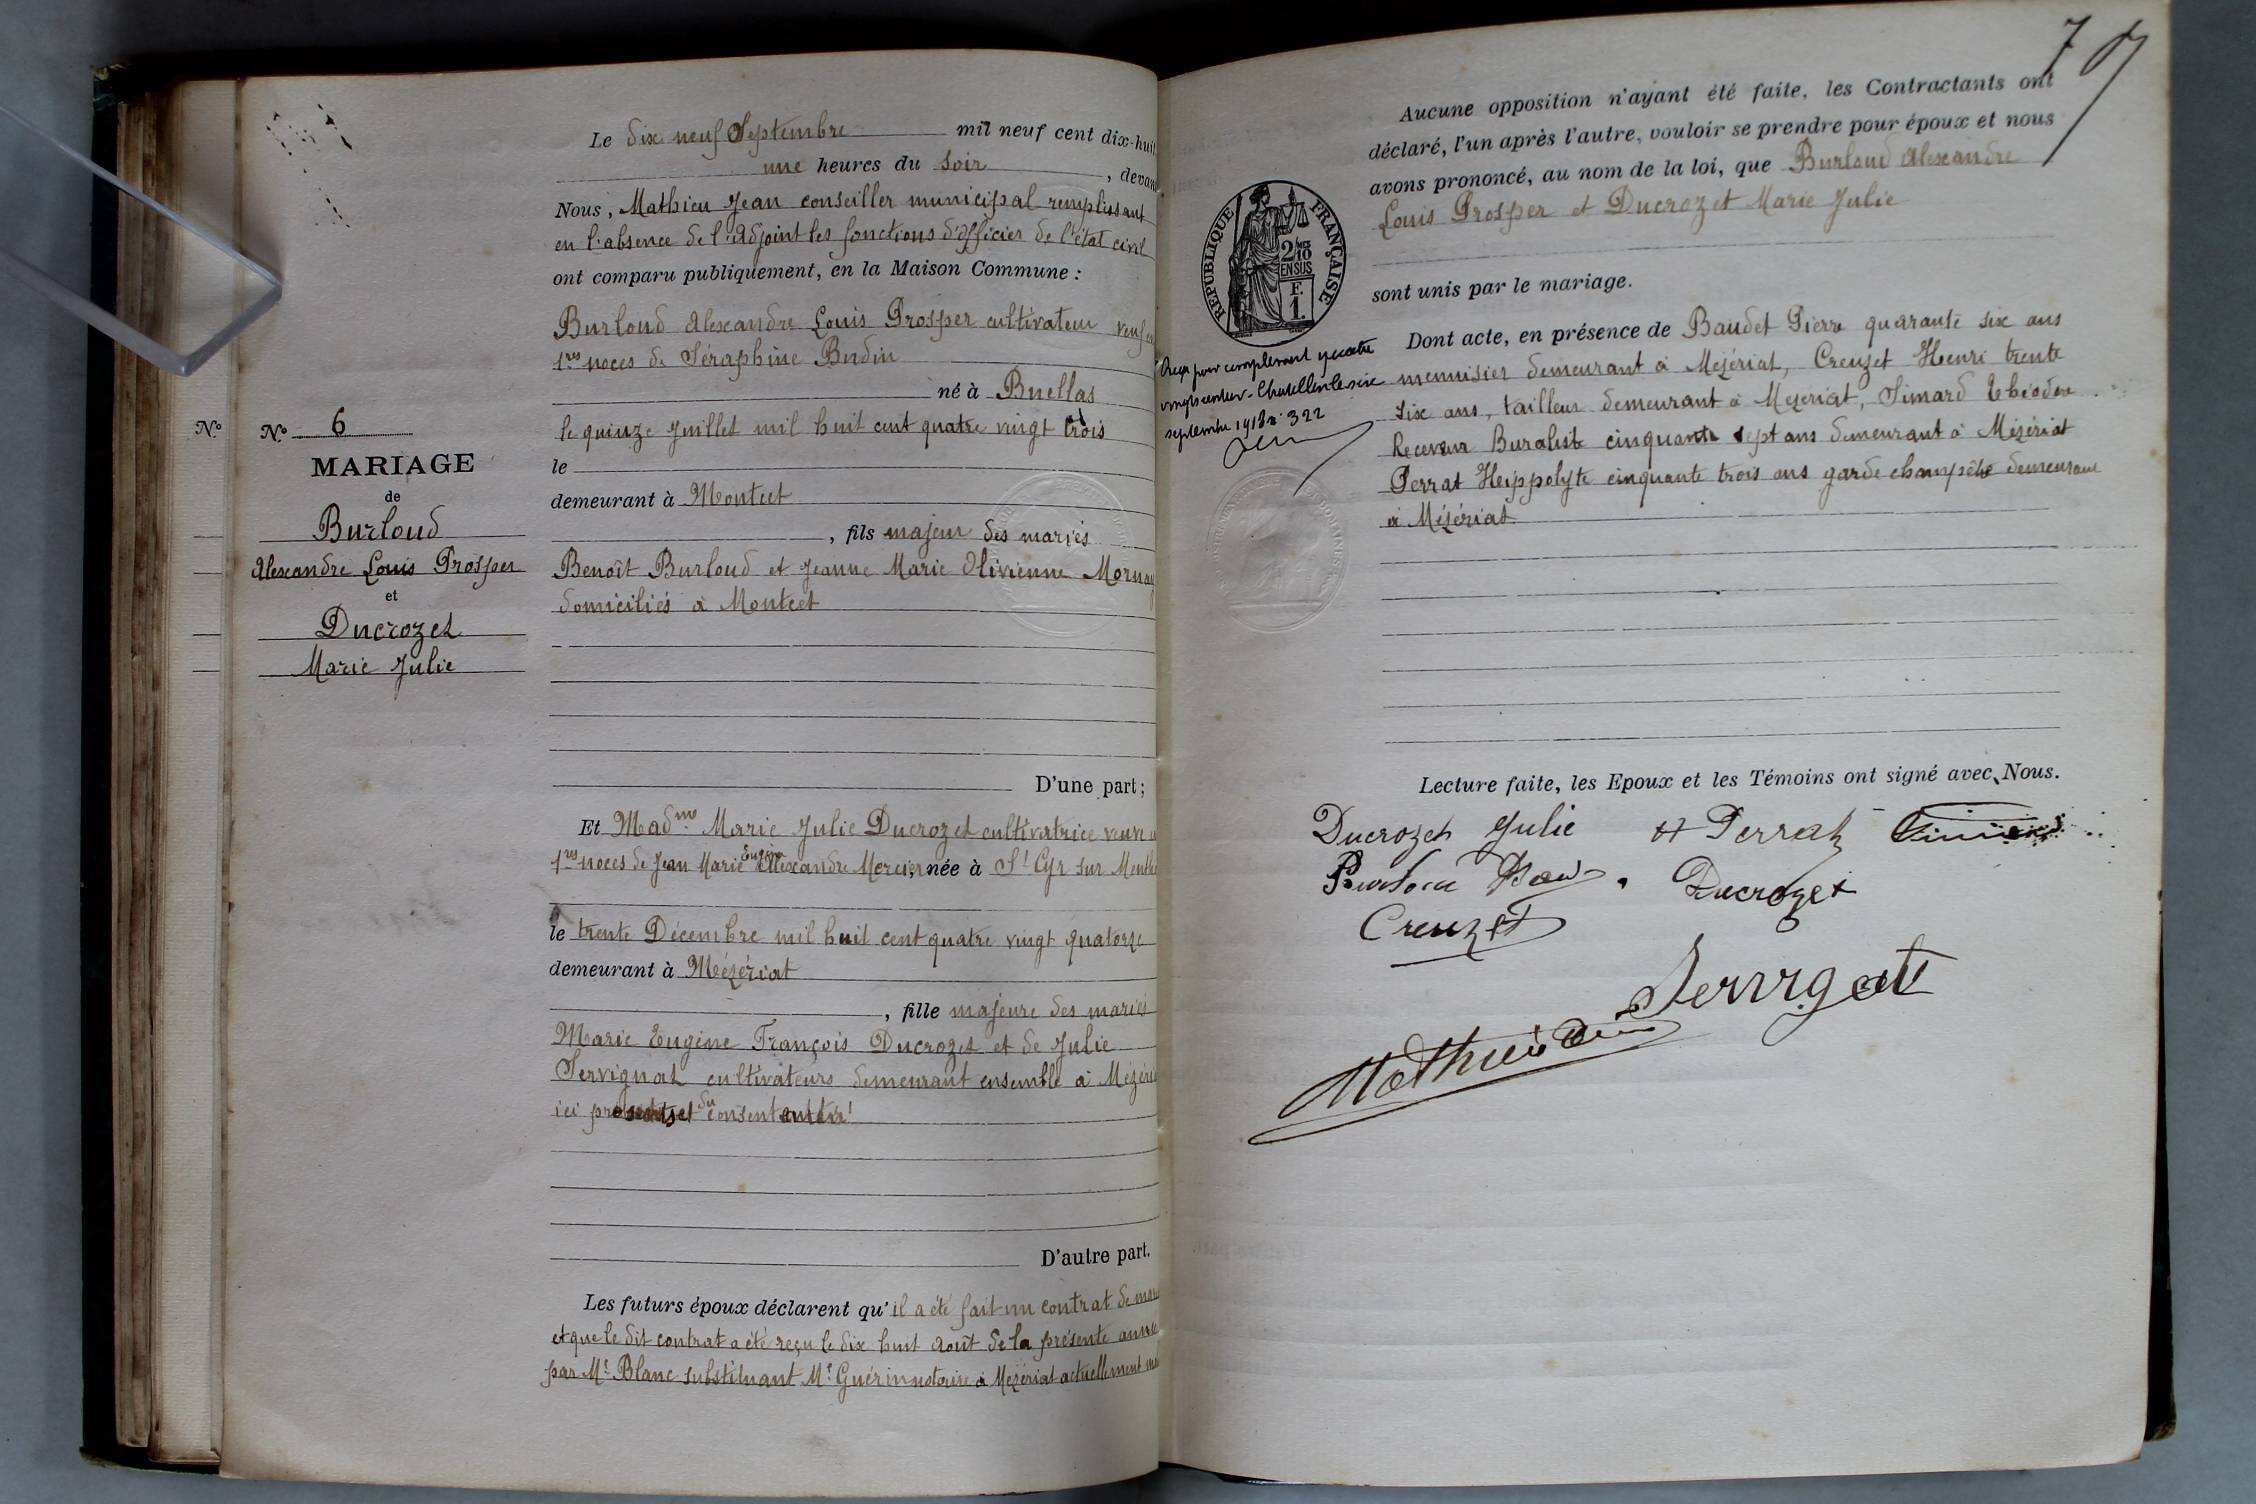 Le dix neuf Septembre mil neuf cent dix-huit
une heures du soir, devant
Nous, Mathieu Jean conseiller municipal remplissant
en l'absence de l'Adjoint les fonctions d'officier de l'état civil
ont comparu publiquement, en la Maison Commune :
Burloud Alexandre Louis Prosper cultivateur veuf en
1res noces de Séraphine Budin
né à Buellas
le quinze Juillet mil huit cent quatre vingt trois
le
demeurant à Montcet
, fils majeur des mariés
Benoît Burloud et Jeanne Marie Olivienne Mornay
domiciliés à Montcet
D'une part;
Et Madme Marie Julie Ducrozet cultivatrice veuve
1res noces de Jean Marie Eugène Alexandre Mercier, née à St Cyr sur Menthon
le trente Décembre mil huit cent quatre vingt quatorze
demeurant à Mézériat
, fille majeure des mariés
Marie Eugène François Ducrozet et de Julie
Servignat cultivateurs demeurant ensemble à Mézériat
ici présents et consentants
D'autre part.
Les futurs époux déclarent qu'il a été fait un contrat de
et que le dit contrat a été reçu le dix huit août de la présente année
par Me Blanc substituant Me Guérin notaire à Mézériat actuellement
No
No 6
MARIAGE
de
Burloud
Alexandre Louis Prosper
et
Ducrozet
Marie Julie
7
Aucune opposition n'ayant été faite, les Contractants ont
déclaré, l'un après l'autre, vouloir se prendre pour époux et nous
avons prononcé, au nom de la loi, que Burloud Alexandre
Louis Prosper et Ducrozet Marie Julie
sont unis par le mariage.
Dont acte, en présence de Baudet Pierre quarante six ans
menuisier demeurant à Mézériat, Creuzet Henri trente
six ans, tailleur demeurant à Mézériat, Simard Théodore
Receveur Buraliste cinquante sept ans demeurant à Mézériat
Perrat Heippolyte cinquante trois ans garde champêtre demeurant
à Mézériat
RÉPUBLIQUE FRANÇAISE
2/10
EN SUS
F.
1.
Reçu pour complément quatre
vingts centimes - Chatillon le six
septembre 1918 no 322
Lecture faite, les Epoux et les Témoins ont signé avec Nous.
Ducrozet Julie
H Perrat
Creuzet
Ducrozet
Servignat
Mathieu Jean